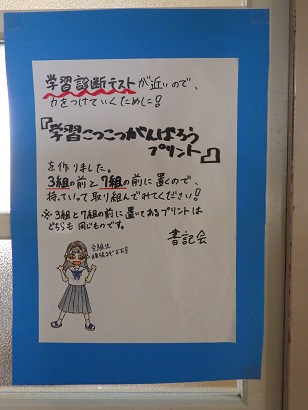 学習診断テストが近いので、
力をつけていくために!
『学習こつこつがんばろう
プリント』
を作りました。
3組の前と7組の前に置くので、
持っていって取り組んでみてください!
※3組と7組の前に置いてあるプリントは
どちらも同じものです。
書記会
受験生